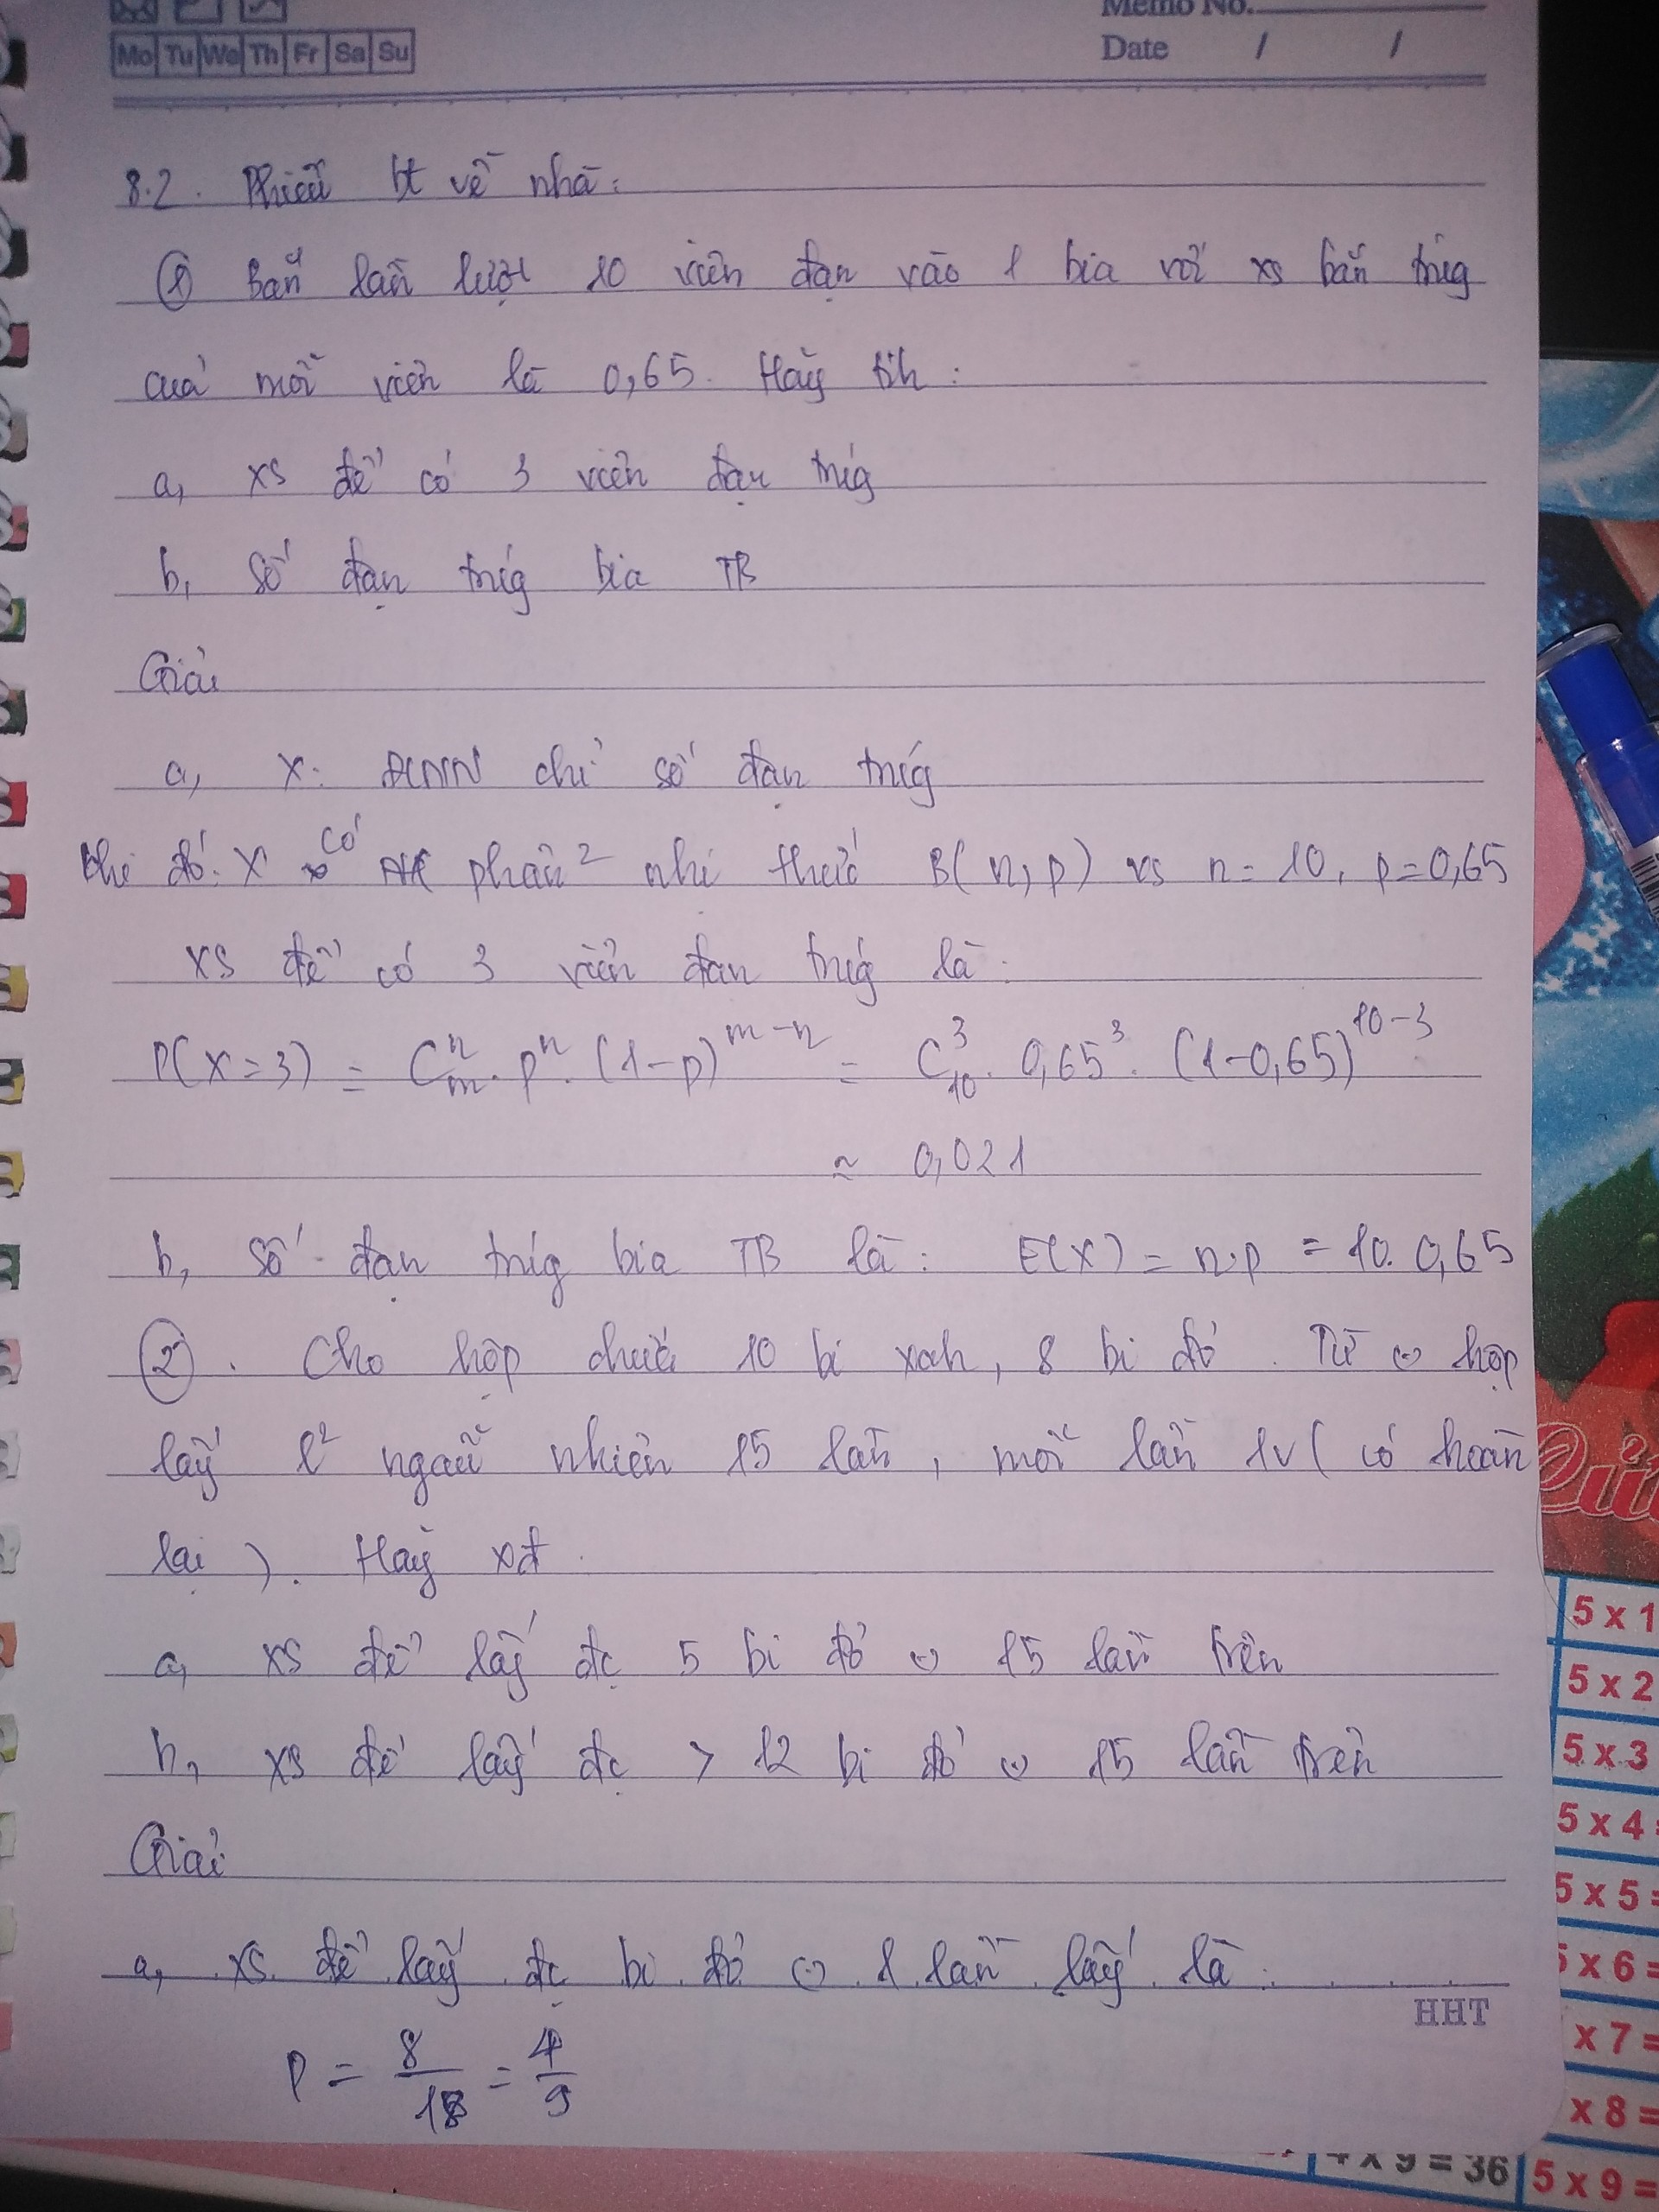 Memo No.
Mo Tu We Th Fr Sa Su
Date / /
8.2. Phiếu bt về nhà:
① Bắn lần lượt 10 viên đạn vào 1 bia với xs bắn trúg
của mỗi viên là 0,65. Hãy tíh:
a, xs để có 3 viên đạn trúg
b, Số đạn trúg bia TB
Giải
a, X: ĐLNN chỉ số đạn trúg
khi đó: X có phân² nhị thức B(n,p) vs n = 10, p = 0,65
xs để có 3 viên đạn trúg là:
P(X=3) = C_m^n. p^n. (1-p)^{m-n} = C_10^3. 0,65^3. (1-0,65)^{10-3}
≈ 0,021
b, Số đạn trúg bia TB là: E(X) = n.p = 10. 0,65
②. Cho hộp chứa 10 bi xah, 8 bi đỏ. Từ hộp
lấy l² ngẫu nhiên 15 lần, mỗi lần 1v (có hoàn
lại). Hãy xđ:
a, xs để lấy đc 5 bi đỏ 15 lần trên
b, xs để lấy đc > 12 bi đỏ 15 lần trên
Giải
a, xs để lấy đc bi đỏ 1 lần lấy là:
HHT
P = 8/18 = 4/9
Qui
5 x 1
5 x 2
5 x 3
5 x 4 =
5 x 5 =
5 x 6 =
x 7 =
x 8 =
4 x 9 = 36 5 x 9 =